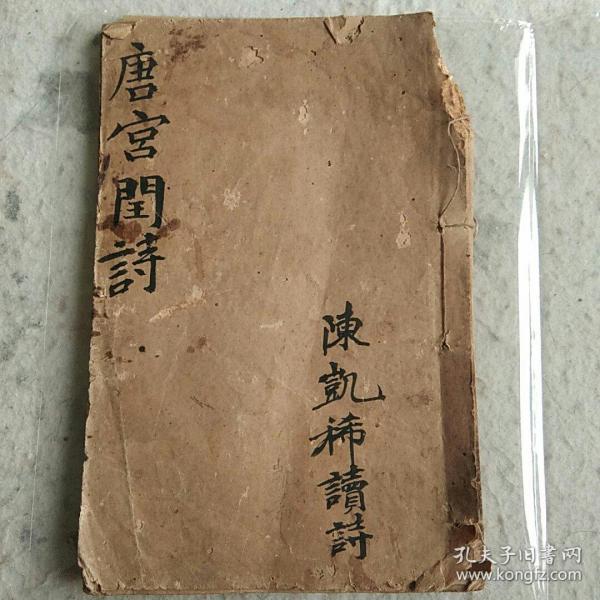 唐宮閨詩
陳凱稀讀詩
孔夫子旧书网
www.kongfz.com